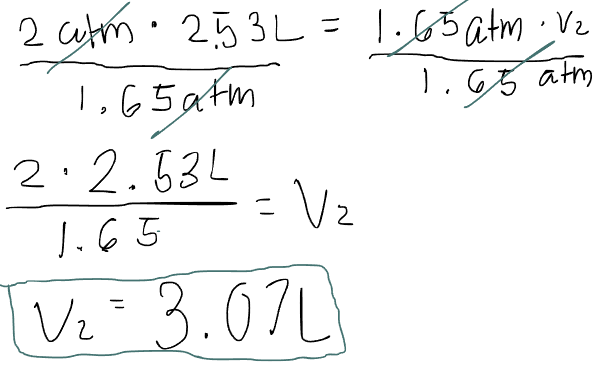 2 atm · 2.53L = 1.65atm · V2
1.65atm 1.65 atm
2 · 2.53L = V2
1.65
V2 = 3.07L